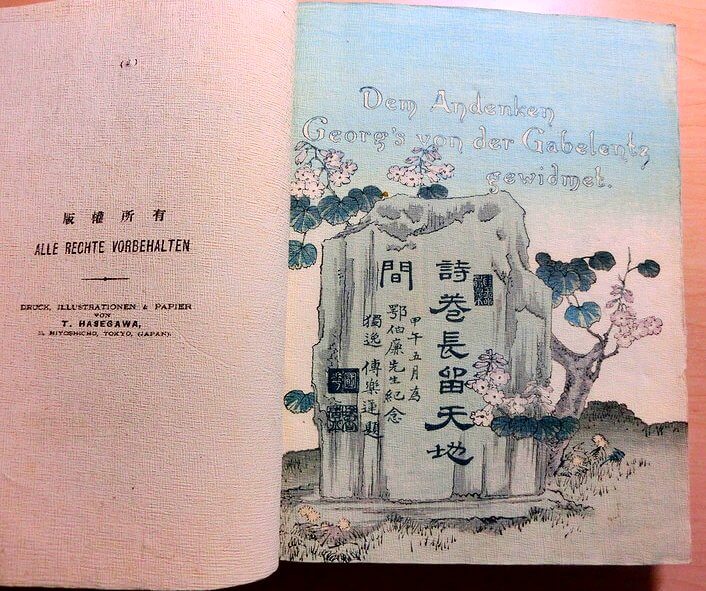 (2)
版權所有
ALLE RECHTE VORBEHALTEN
DRUCK, ILLUSTRATIONEN & PAPIER
VON
T. HASEGAWA,
TOKYO, (JAPAN).
Dem Andenken
Georg's von der Gabelentz
gewidmet.
詩卷長留天地
間
甲午五月為
鄂伯廉先生紀念
獨逸 傅樂運題